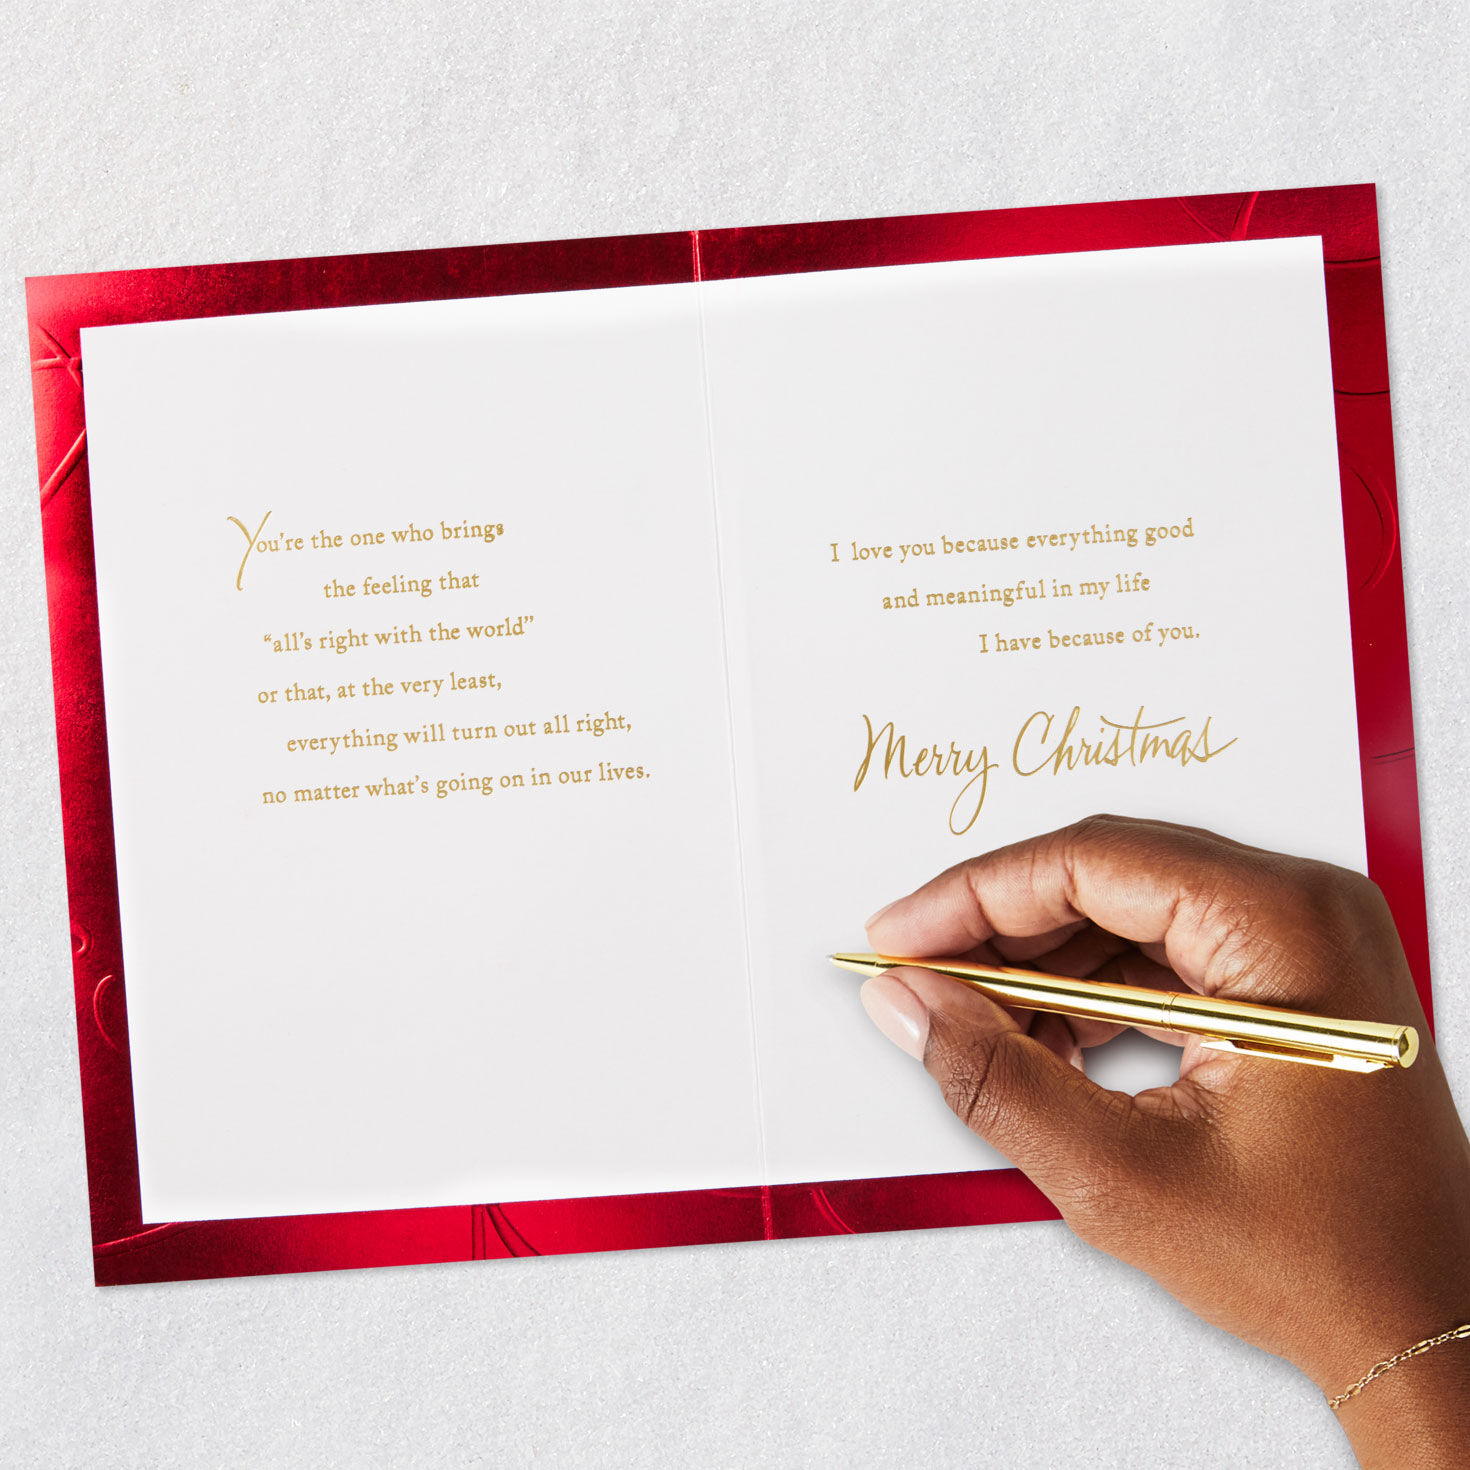 You're the one who brings
the feeling that
“all's right with the world”
or that, at the very least,
everything will turn out all right,
no matter what's going on in our lives.
I love you because everything good
and meaningful in my life
I have because of you.
Merry Christmas